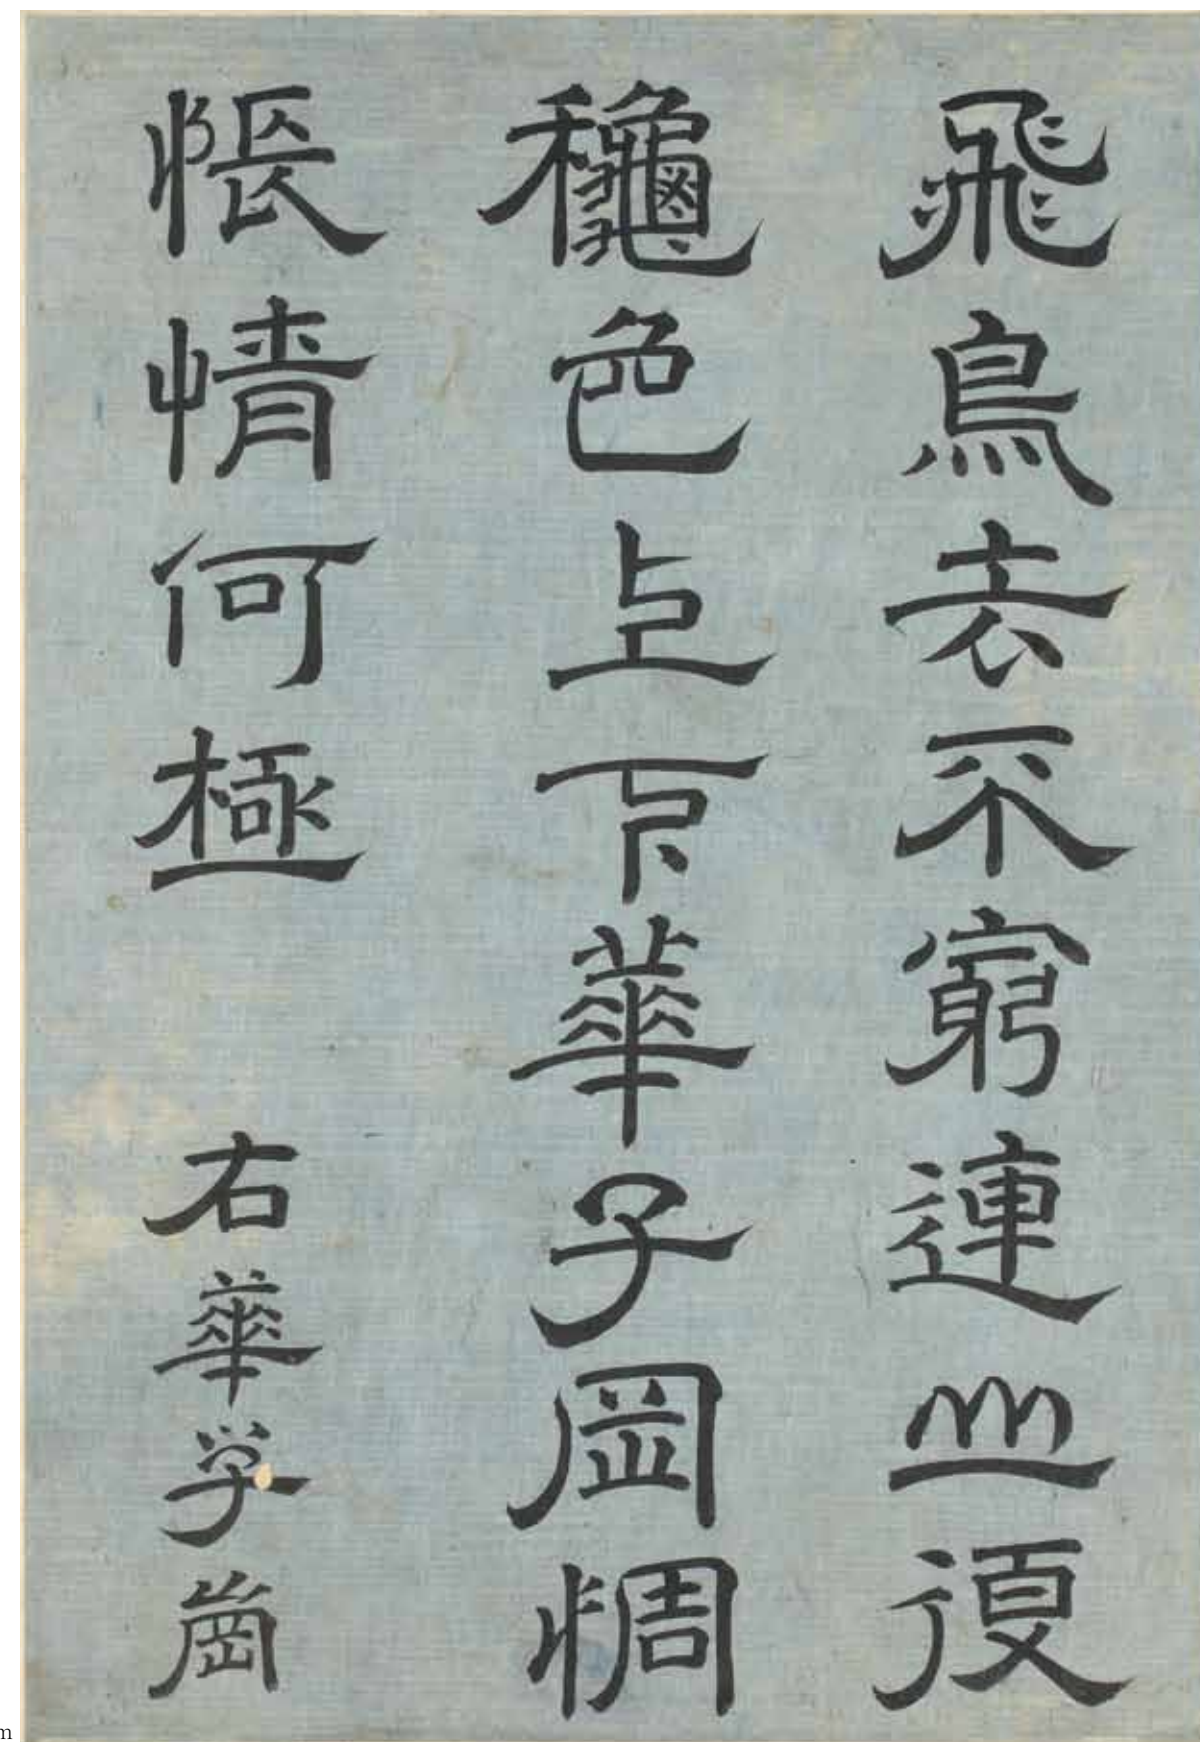 飛鳥去不窮連山復
龝色上下華子岡惆
悵情何極
右華学崗
m